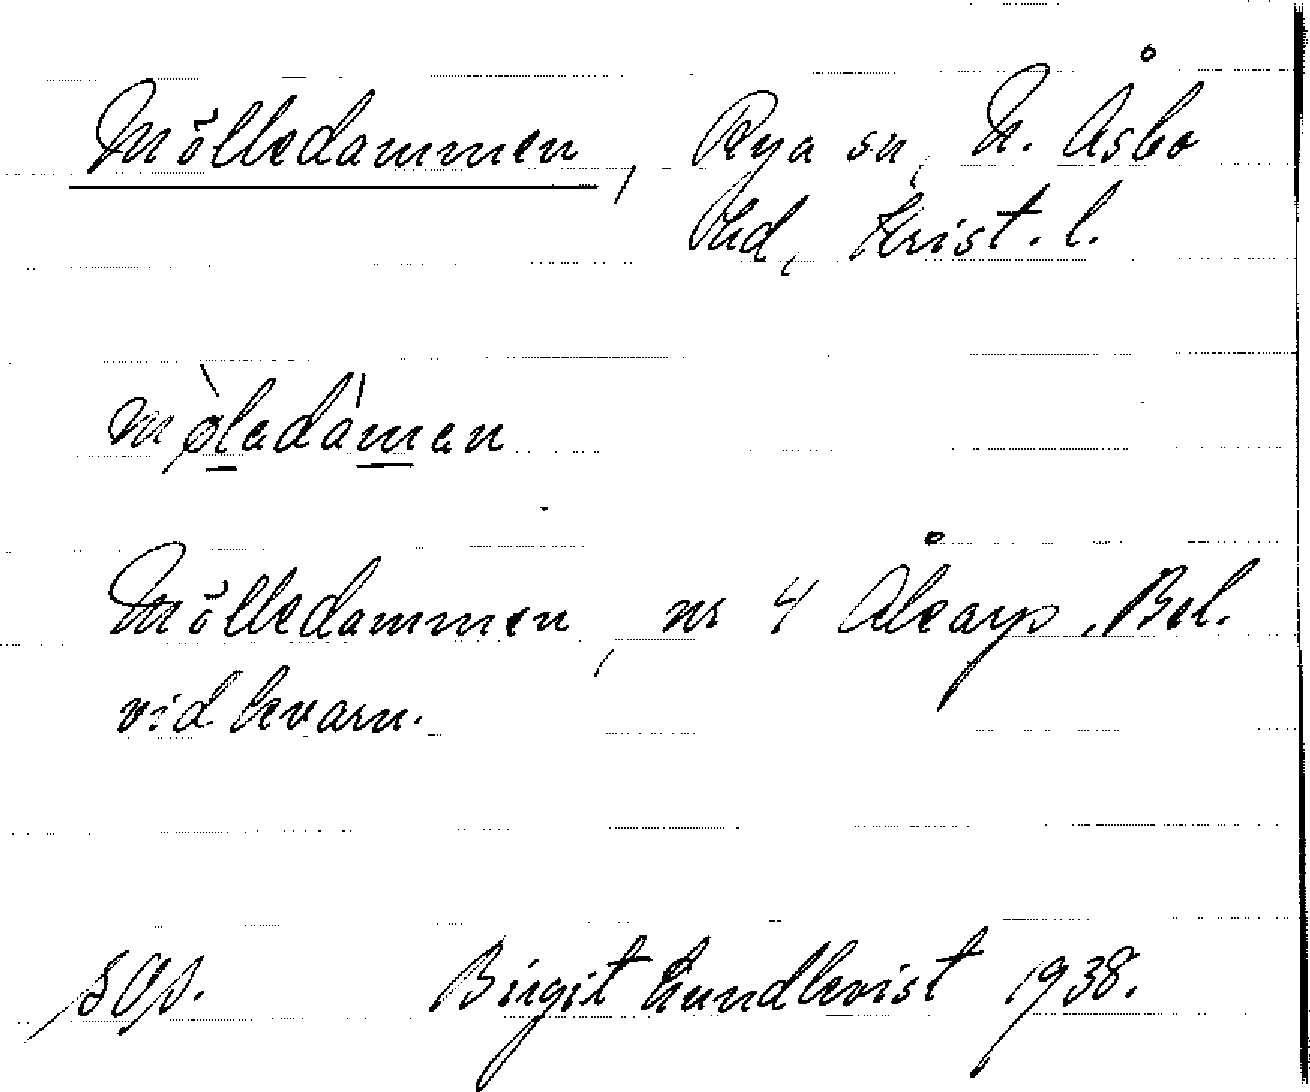 Mölledammen, Rya sn, N. Åsbo
hd, Krist. l.
mø̀ladàman
Mölledammen, nr 4 Ålcarp. Bel.
vid kvarn.
Birgit Lundkvist 1938.